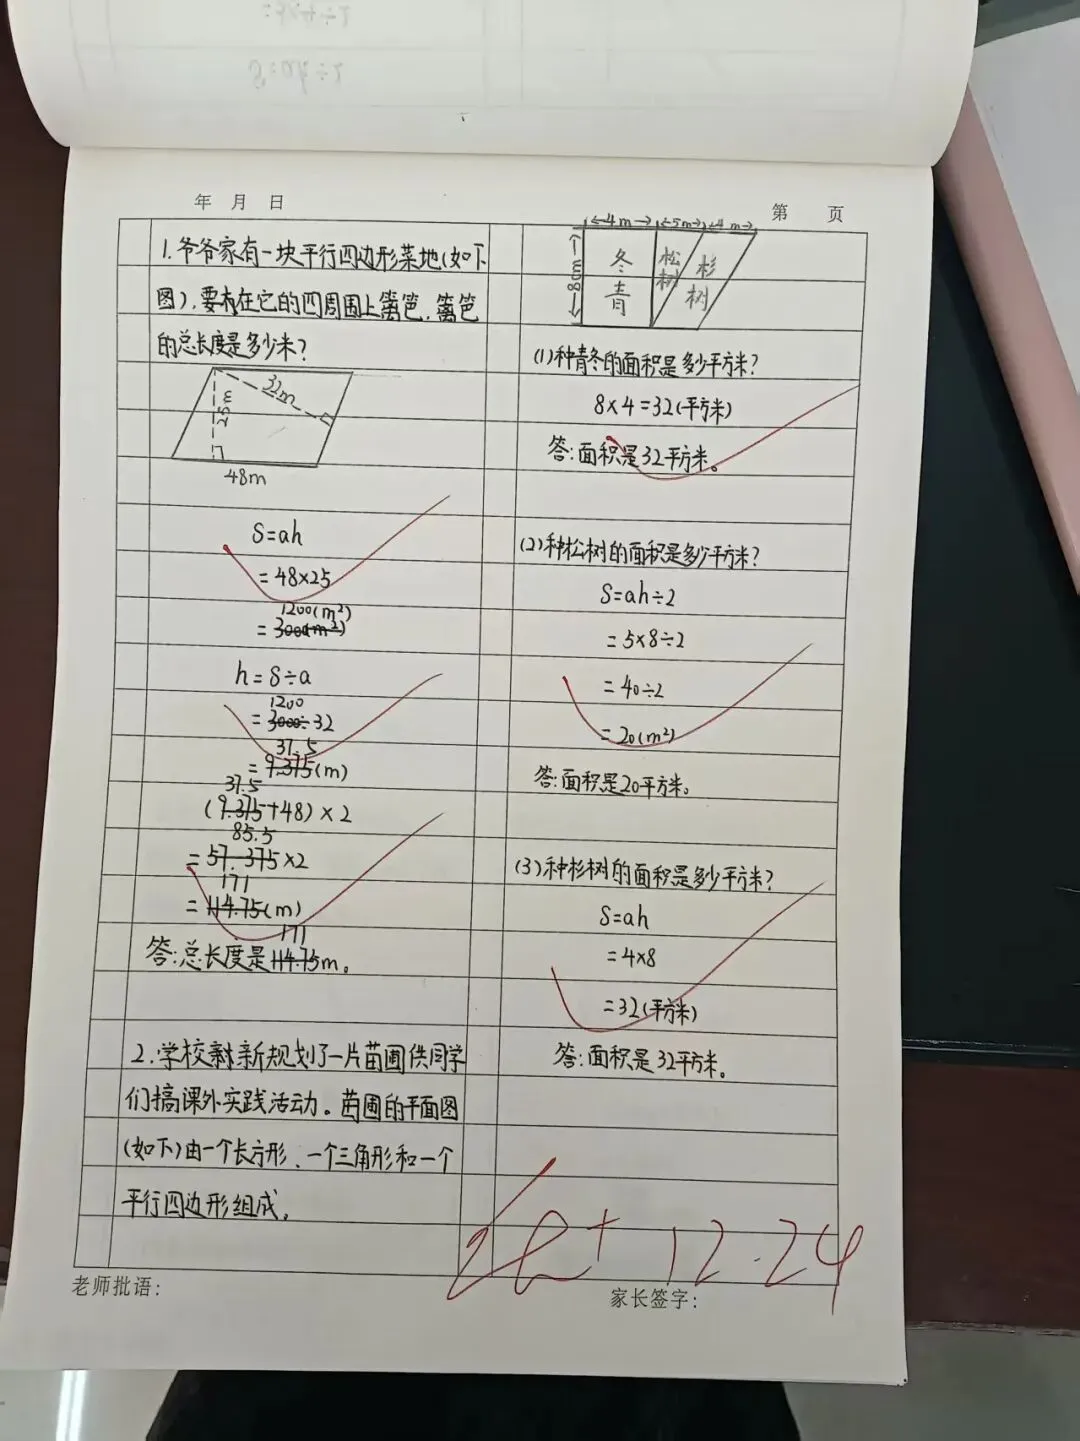 年 月 日
第 页
1.爷爷家有一块平行四边形菜地(如下
图),要在它的四周围上篱笆,篱笆
的总长度是多少米?
32m
25m
48m
S=ah
=48×25
1200(m²)
=3000(m²)
h=S÷a
1200
=3000÷32
37.5
=9.375(m)
37.5
(9.375+48)×2
85.5
=57.375×2
171
=114.75(m)
171
答:总长度是114.75m。
2.学校新规划了一片苗圃供同学
们搞课外实践活动。苗圃的平面图
(如下)由一个长方形、一个三角形和一个
平行四边形组成。
←4m→ ←5m→ ←4m→
8cm
冬青
松树
杉树
(1)种青冬的面积是多少平方米?
8×4=32(平方米)
答:面积是32平方米。
(2)种松树的面积是多少平方米?
S=ah÷2
=5×8÷2
=40÷2
=20(m²)
答:面积是20平方米。
(3)种杉树的面积是多少平方米?
S=ah
=4×8
=32(平方米)
答:面积是32平方米。
12.24
老师批语:
家长签字: